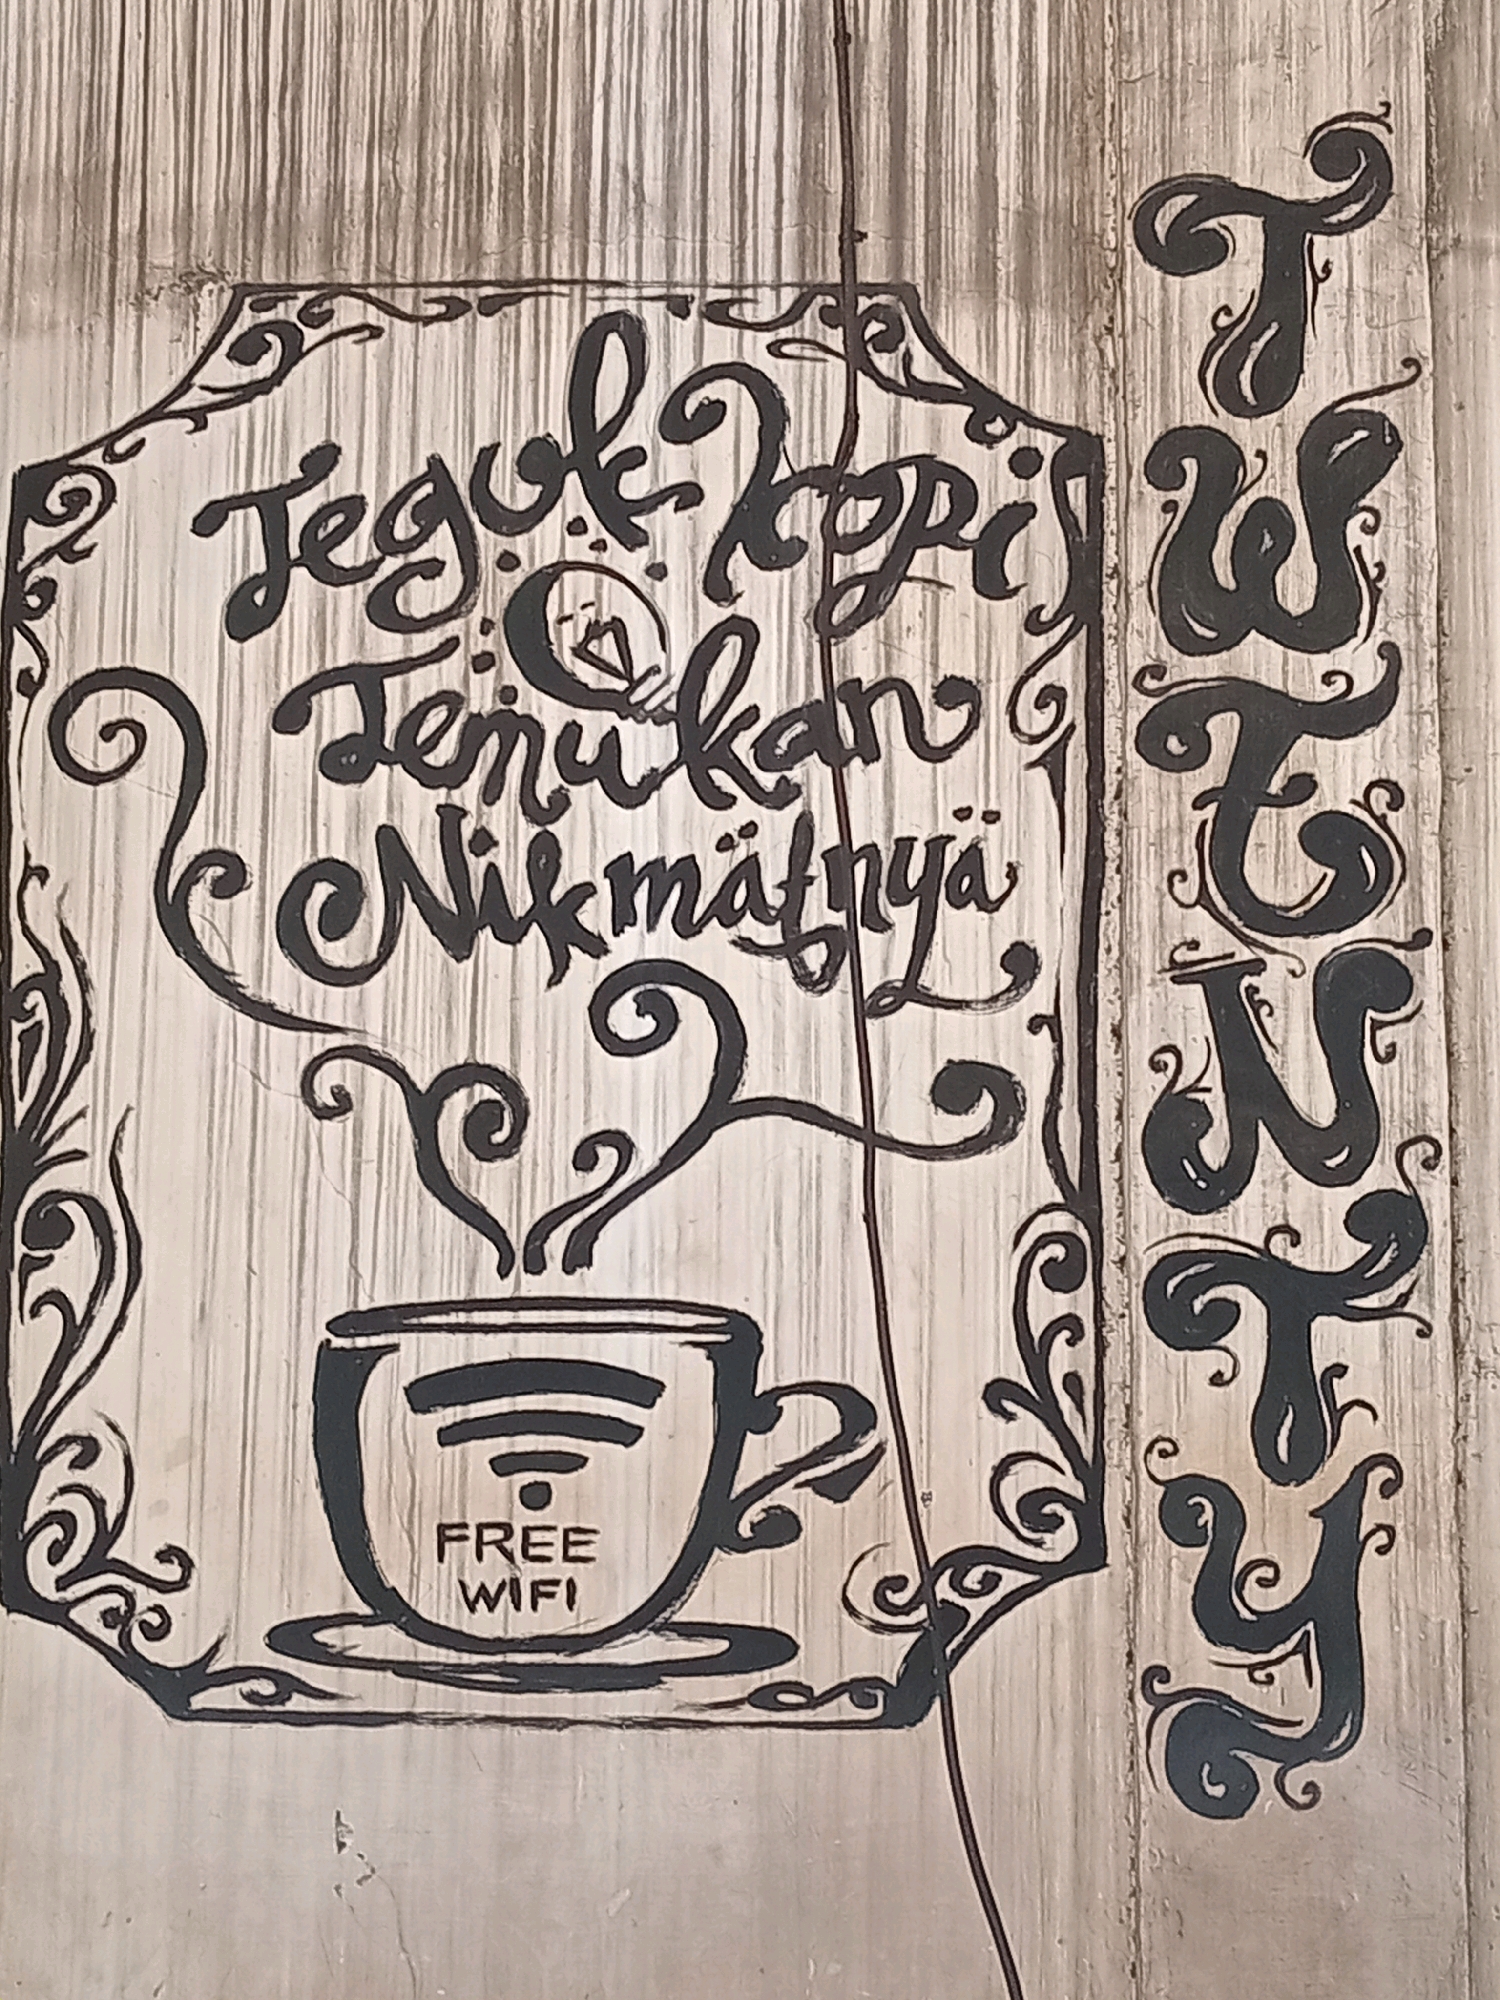 Teguk Kopi
Temukan
Nikmätnyä
FREE
WIFI
TWENTY